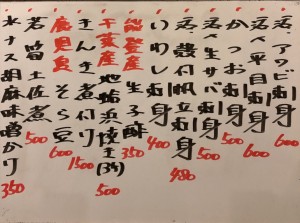 活〆アワビ刺身 600
活〆平目刺身 600
かつお刺身 500
活〆生サバ刺身 500
活殻付帆立刺身 480
いわし刺身 400
能登産 生子酢 350
千葉産 地蛤浜焼き(3ケ) 500
きんき煮付け 1500
鹿児島 そら豆 600
若筍土佐煮 500
水ナス胡麻味噌かけ 350